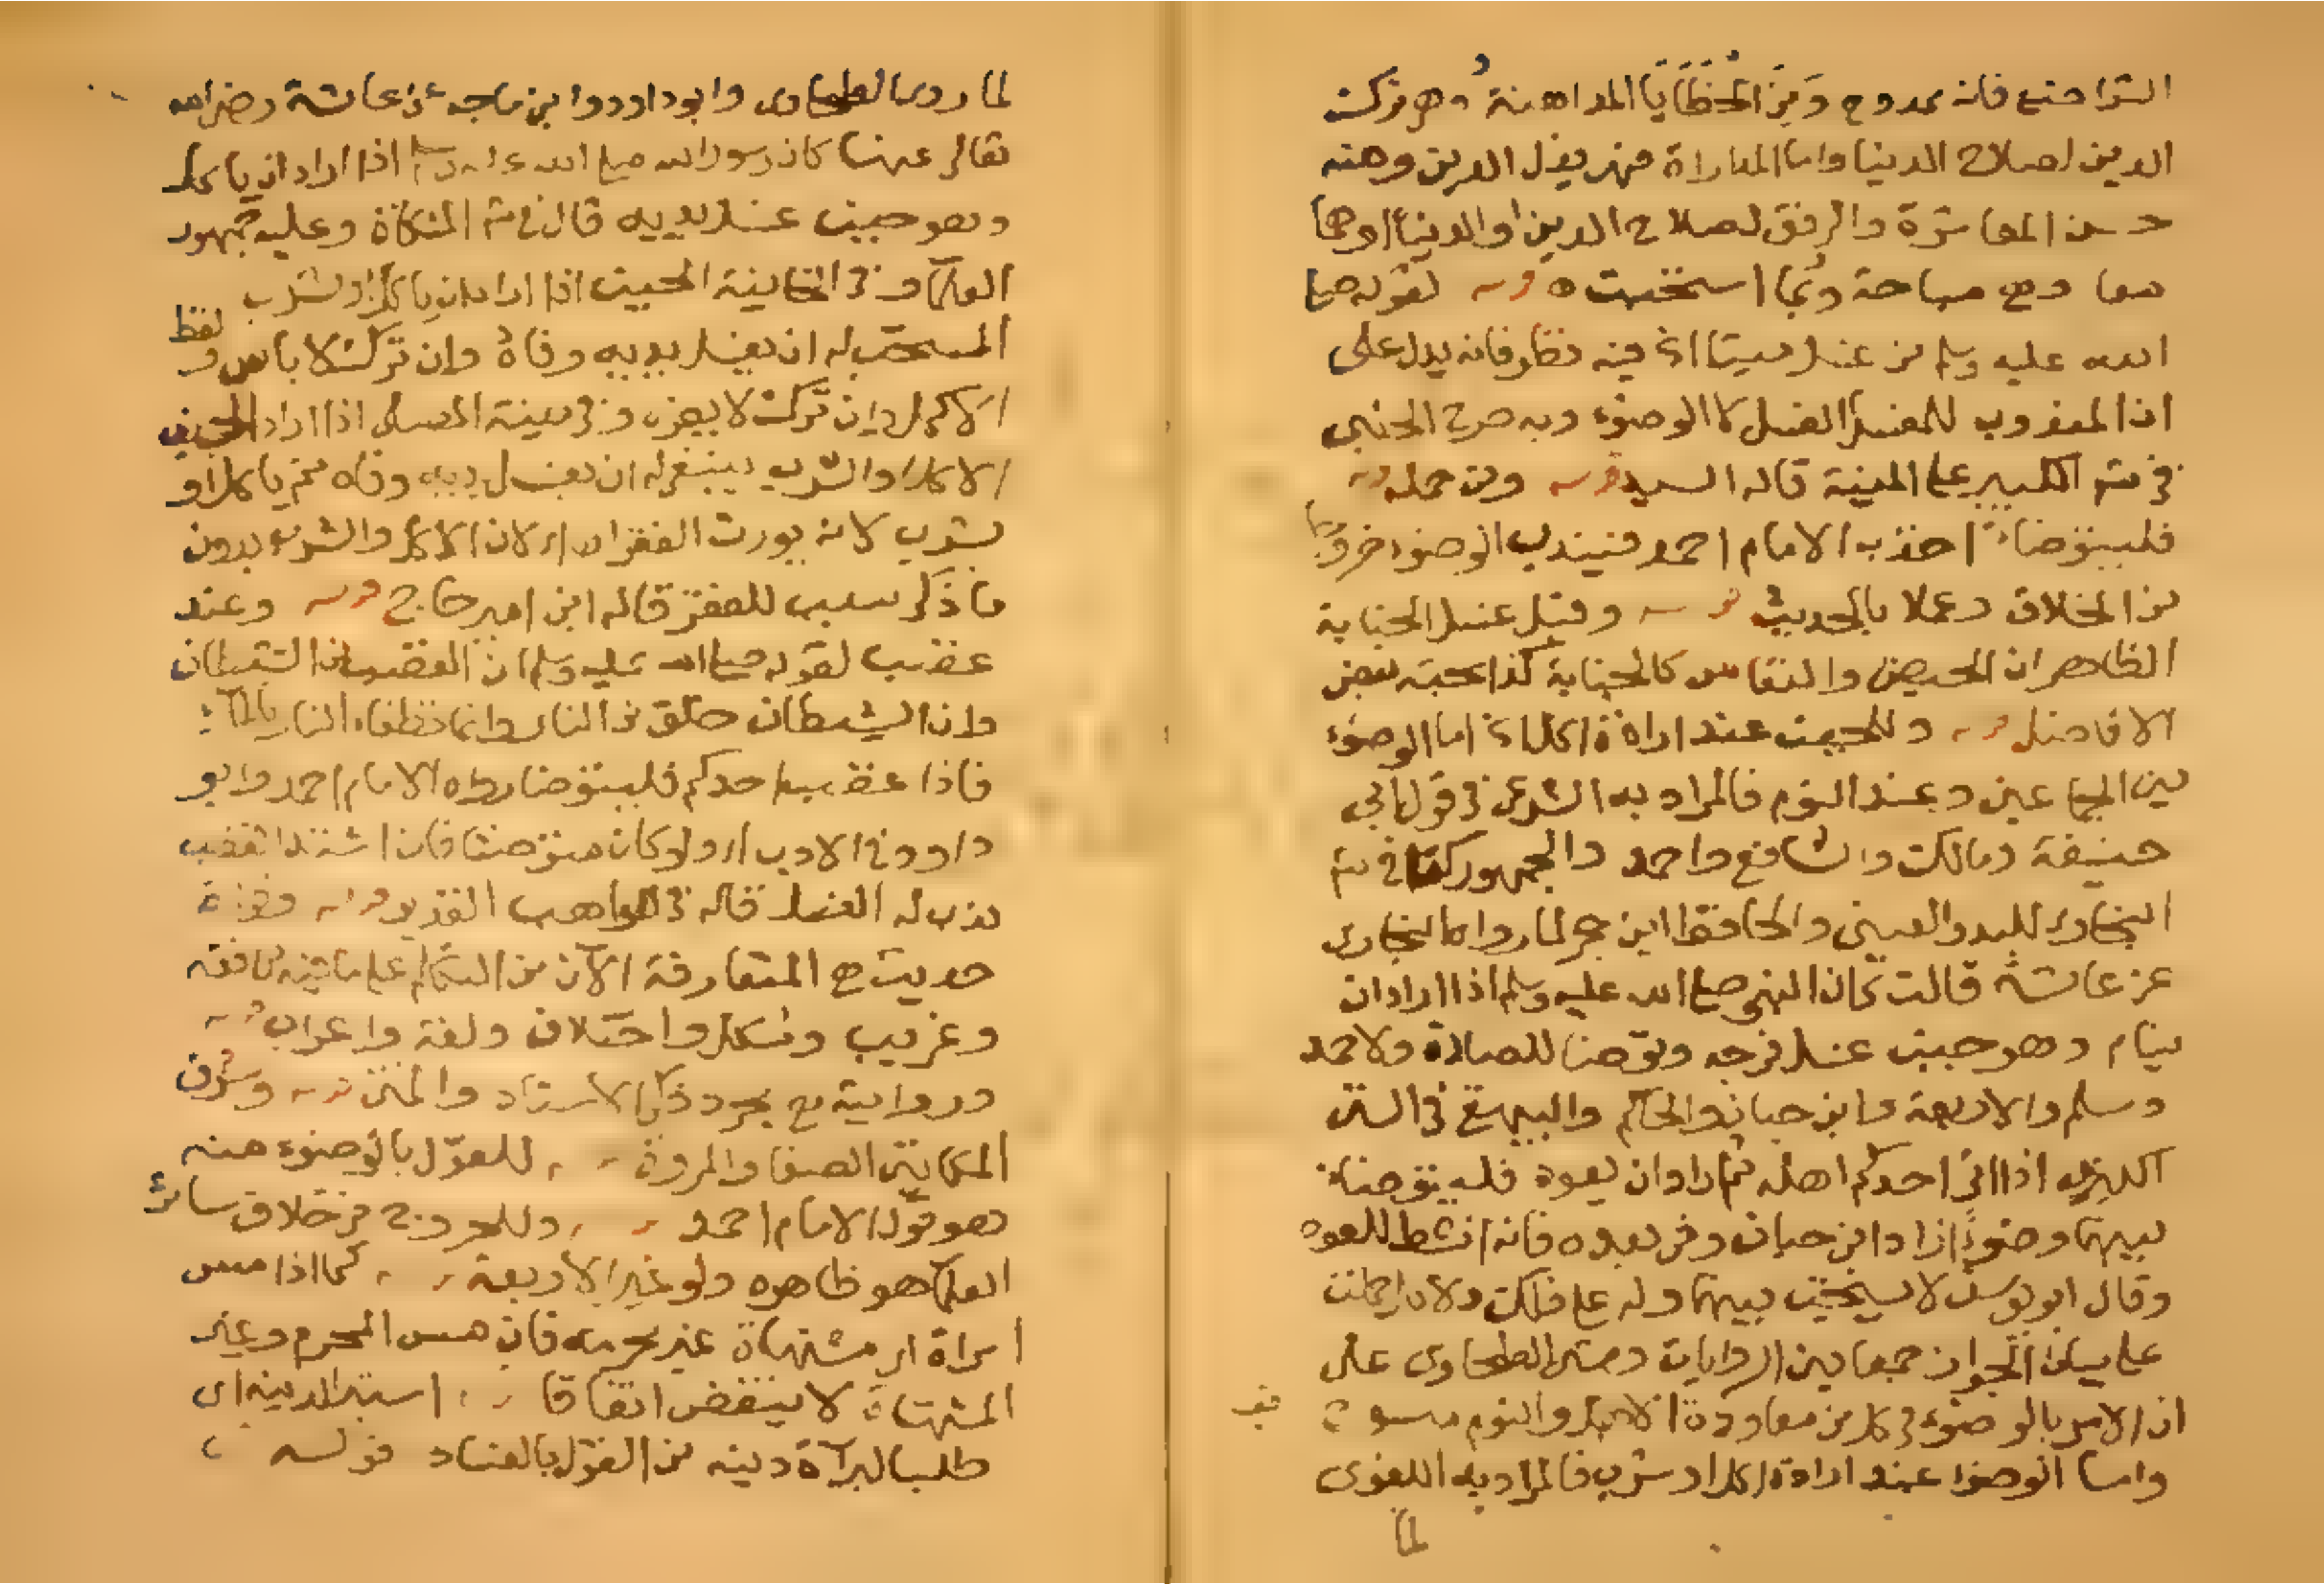 التواضع فانه ممدوح ومن الخطايا المداهنة وهي ترك
الدين لصلاح الدنيا واما المداراة فهي بذل الدين ومنه
حسن المعاشرة والرفق لصلاح الدين او الدنيا او هما
معا وهي مباحة وربما استحبت قوله لقوله صلى
الله عليه وسلم من غسل ميتا اي فيه نظر فانه يدل على
ان المندوب للمغسل الغسل لا الوضوء وبه صرح الحلبي
في شر الكبير على المنية قاله السيد قوله ومن حمله
فليتوضاء اخذ به الامام احمد فيندب الوضوء خروجا
من الخلاف وعملا بالحديث قوله وقبل غسل الجنابة
الظاهر ان الحيض والنفاس كالجنابة كذا بحثه بعض
الافاضل قوله وللجنب عند ارادة اكل اي اما الوضوء
بين الجماعين وعند النوم فالمراد به الشرعي في قول ابي
حنيفة ومالك والشافعي واحمد والجمهور كما في شر
البخاري للبدر العيني والحافظ ابن حجر لما رواه البخاري
عن عائشة قالت كان النبي صلى الله عليه وسلم اذا اراد ان
ينام وهو جنب غسل فرجه وتوضا للصلاة ولاحمد
ومسلم والاربعة وابن حبان والحاكم والبيهقي في السنن
الكبرى اذا اتى احدكم اهله ثم اراد ان يعود فليتوضا
بينهما وضوءا زاد ابن حبان وغيره فانه انشط للعود
وقال ابو يوسف لا يستحب بينهما وله على ذلك
على بيان الجواز جمعا بين الروايات ومشى الطحاوي على
ان الامر بالوضوء في كل من معاودة الاهل والنوم منسوخ
واما الوضوء عند ارادة اكل او شرب فالمراد به اللغوى
لما
لما روى الطحاوى وابو داود وابن ماجه عن عائشة رضي الله
تعالى عنها كان رسول الله صلى الله عليه وسلم اذا اراد ان ياكل
وهو جنب غسل يديه قال في شر المشكاة وعليه جمهور
العلماء وفي الخانية الجنب اذا اراد ان ياكل او يشرب
المستحب له ان يغسل يديه وفاه وان ترك لا باس و لفظ
الاكمل وان ترك لا يضره وفي منية المصلى اذا اراد الجنب
الاكل او الشرب ينبغي له ان يغسل يديه وفاه ثم ياكل او
يشرب لانه يورث الفقر اه اي لان الاكل والشرب بدون
ما ذكر سبب للفقر قاله ابن امير حاج قوله وعند
غضب لقوله صلى الله عليه وسلم ان الغضب من الشيطان
وان الشيطان خلق من النار وانما تطفاء النار بالماء
فاذا غضب احدكم فليتوضا رواه الامام احمد وابو
داود في الادب اي ولو كان متوضئا فان اشتد الغضب
ندب له الغسل قاله في المواهب القدير قوله وقراءة
حديث هي المتعارفة الان من التكلم على ما فيه من فقه
وغريب ومشكل واختلاف ولغة واعراب
ورواية مع مجرد ذكر الاسناد والمتن قوله وشرف
المكانين الصفا والمروة للقول بالوضوء منه
هو قول الامام احمد وللخروج من خلاف سائر
العلماء هو ظاهره ولو غير الاربعة كما اذا مس
امراة اي مشتهاة غير محرمه فان مس المحرم وغير
المشتهاة لا ينقض اتفاقا استبرا لدينه اى
طلب البراءة دينه من القول بالفساد قوله